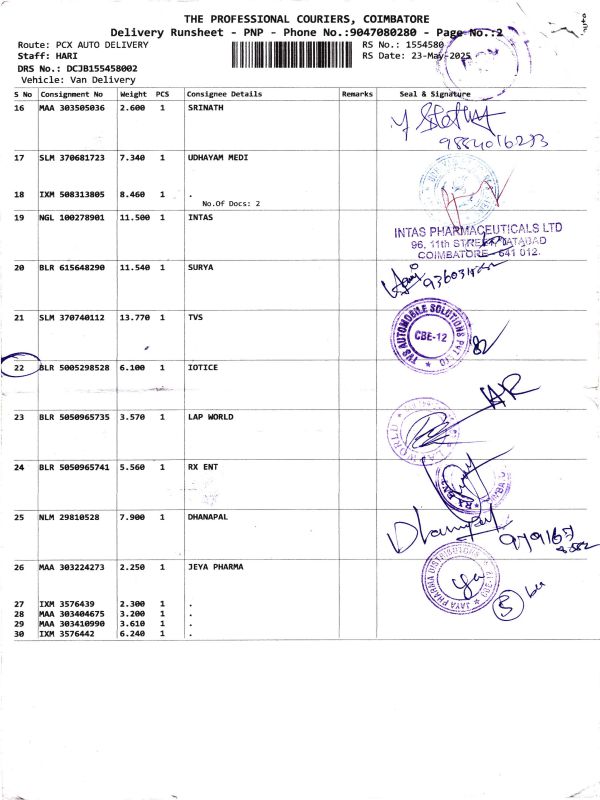 THE PROFESSIONAL COURIERS, COIMBATORE
Delivery Runsheet - PNP - Phone No.:9047080280 - Page No.:2
Route: PCX AUTO DELIVERY RS No.: 1554580
Staff: HARI RS Date: 23-May-2025
DRS No.: DCJB155458002
Vehicle: Van Delivery
S No Consignment No Weight PCS Consignee Details Remarks Seal & Signature
16 MAA 303505036 2.600 1 SRINATH
9884016233
17 SLM 370681723 7.340 1 UDHAYAM MEDI
18 IXM 508313805 8.460 1 .
No.Of Docs: 2
19 NGL 100278901 11.500 1 INTAS
INTAS PHARMACEUTICALS LTD
96, 11th STREET, TATABAD
COIMBATORE - 641 012.
20 BLR 615648290 11.540 1 SURYA
21 SLM 370740112 13.770 1 TVS
TVS AUTOMOBILE SOLUTIONS PVT LTD
CBE-12
22 BLR 5005298528 6.100 1 IOTICE
23 BLR 5050965735 3.570 1 LAP WORLD
24 BLR 5050965741 5.560 1 RX ENT
25 NLM 29810528 7.900 1 DHANAPAL
Dhanapal
26 MAA 303224273 2.250 1 JEYA PHARMA
JAYA PHARMA DISTRIBUTORS
5
27 IXM 3576439 2.300 1 .
28 MAA 303404675 3.200 1 .
29 MAA 303410990 3.610 1 .
30 IXM 3576442 6.240 1 .